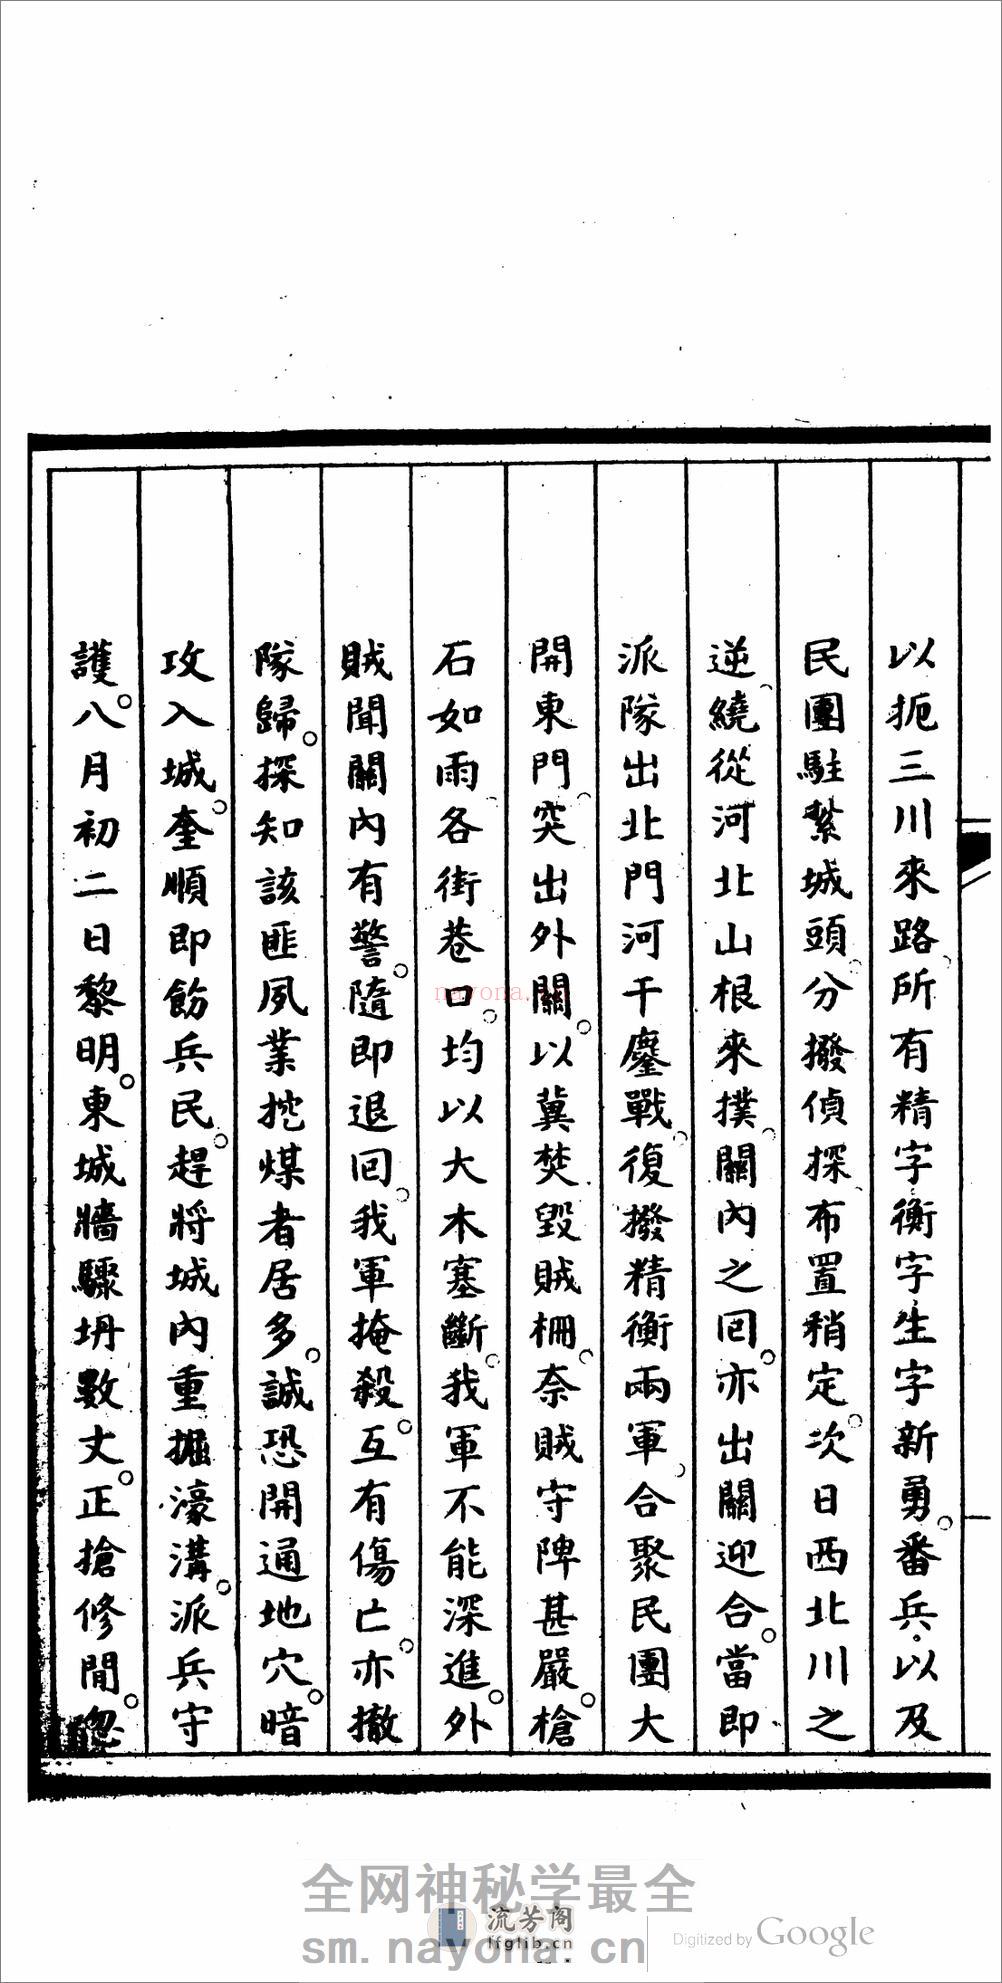 以扼三川來路所有精字衡字生字新勇。番兵以及
民團駐紮城頭分撥偵探布置稍定。次日西北川之
逆繞從河北山根來撲關內之回。亦出關迎合。當即
派隊出北門河干鏖戰。復撥精衡兩軍合聚民團大
開東門突出外關。以冀焚毀賊柵。奈賊守陴甚嚴。槍
石如雨各街巷口。均以大木塞斷。我軍不能深進。外
賊聞關內有警。隨即退回。我軍掩殺。互有傷亡。亦撤
隊歸。探知該匪夙業挖煤者居多。誠恐開通地穴。暗
攻入城。奎順即飭兵民。趕將城內重掘濠溝。派兵守
護。八月初二日黎明。東城牆驟坍數丈。正搶修間。忽
nayona.cn
全网神秘学最全
流芳阁
lfglib.cn
sm.nayona.cn
Digitized by Google